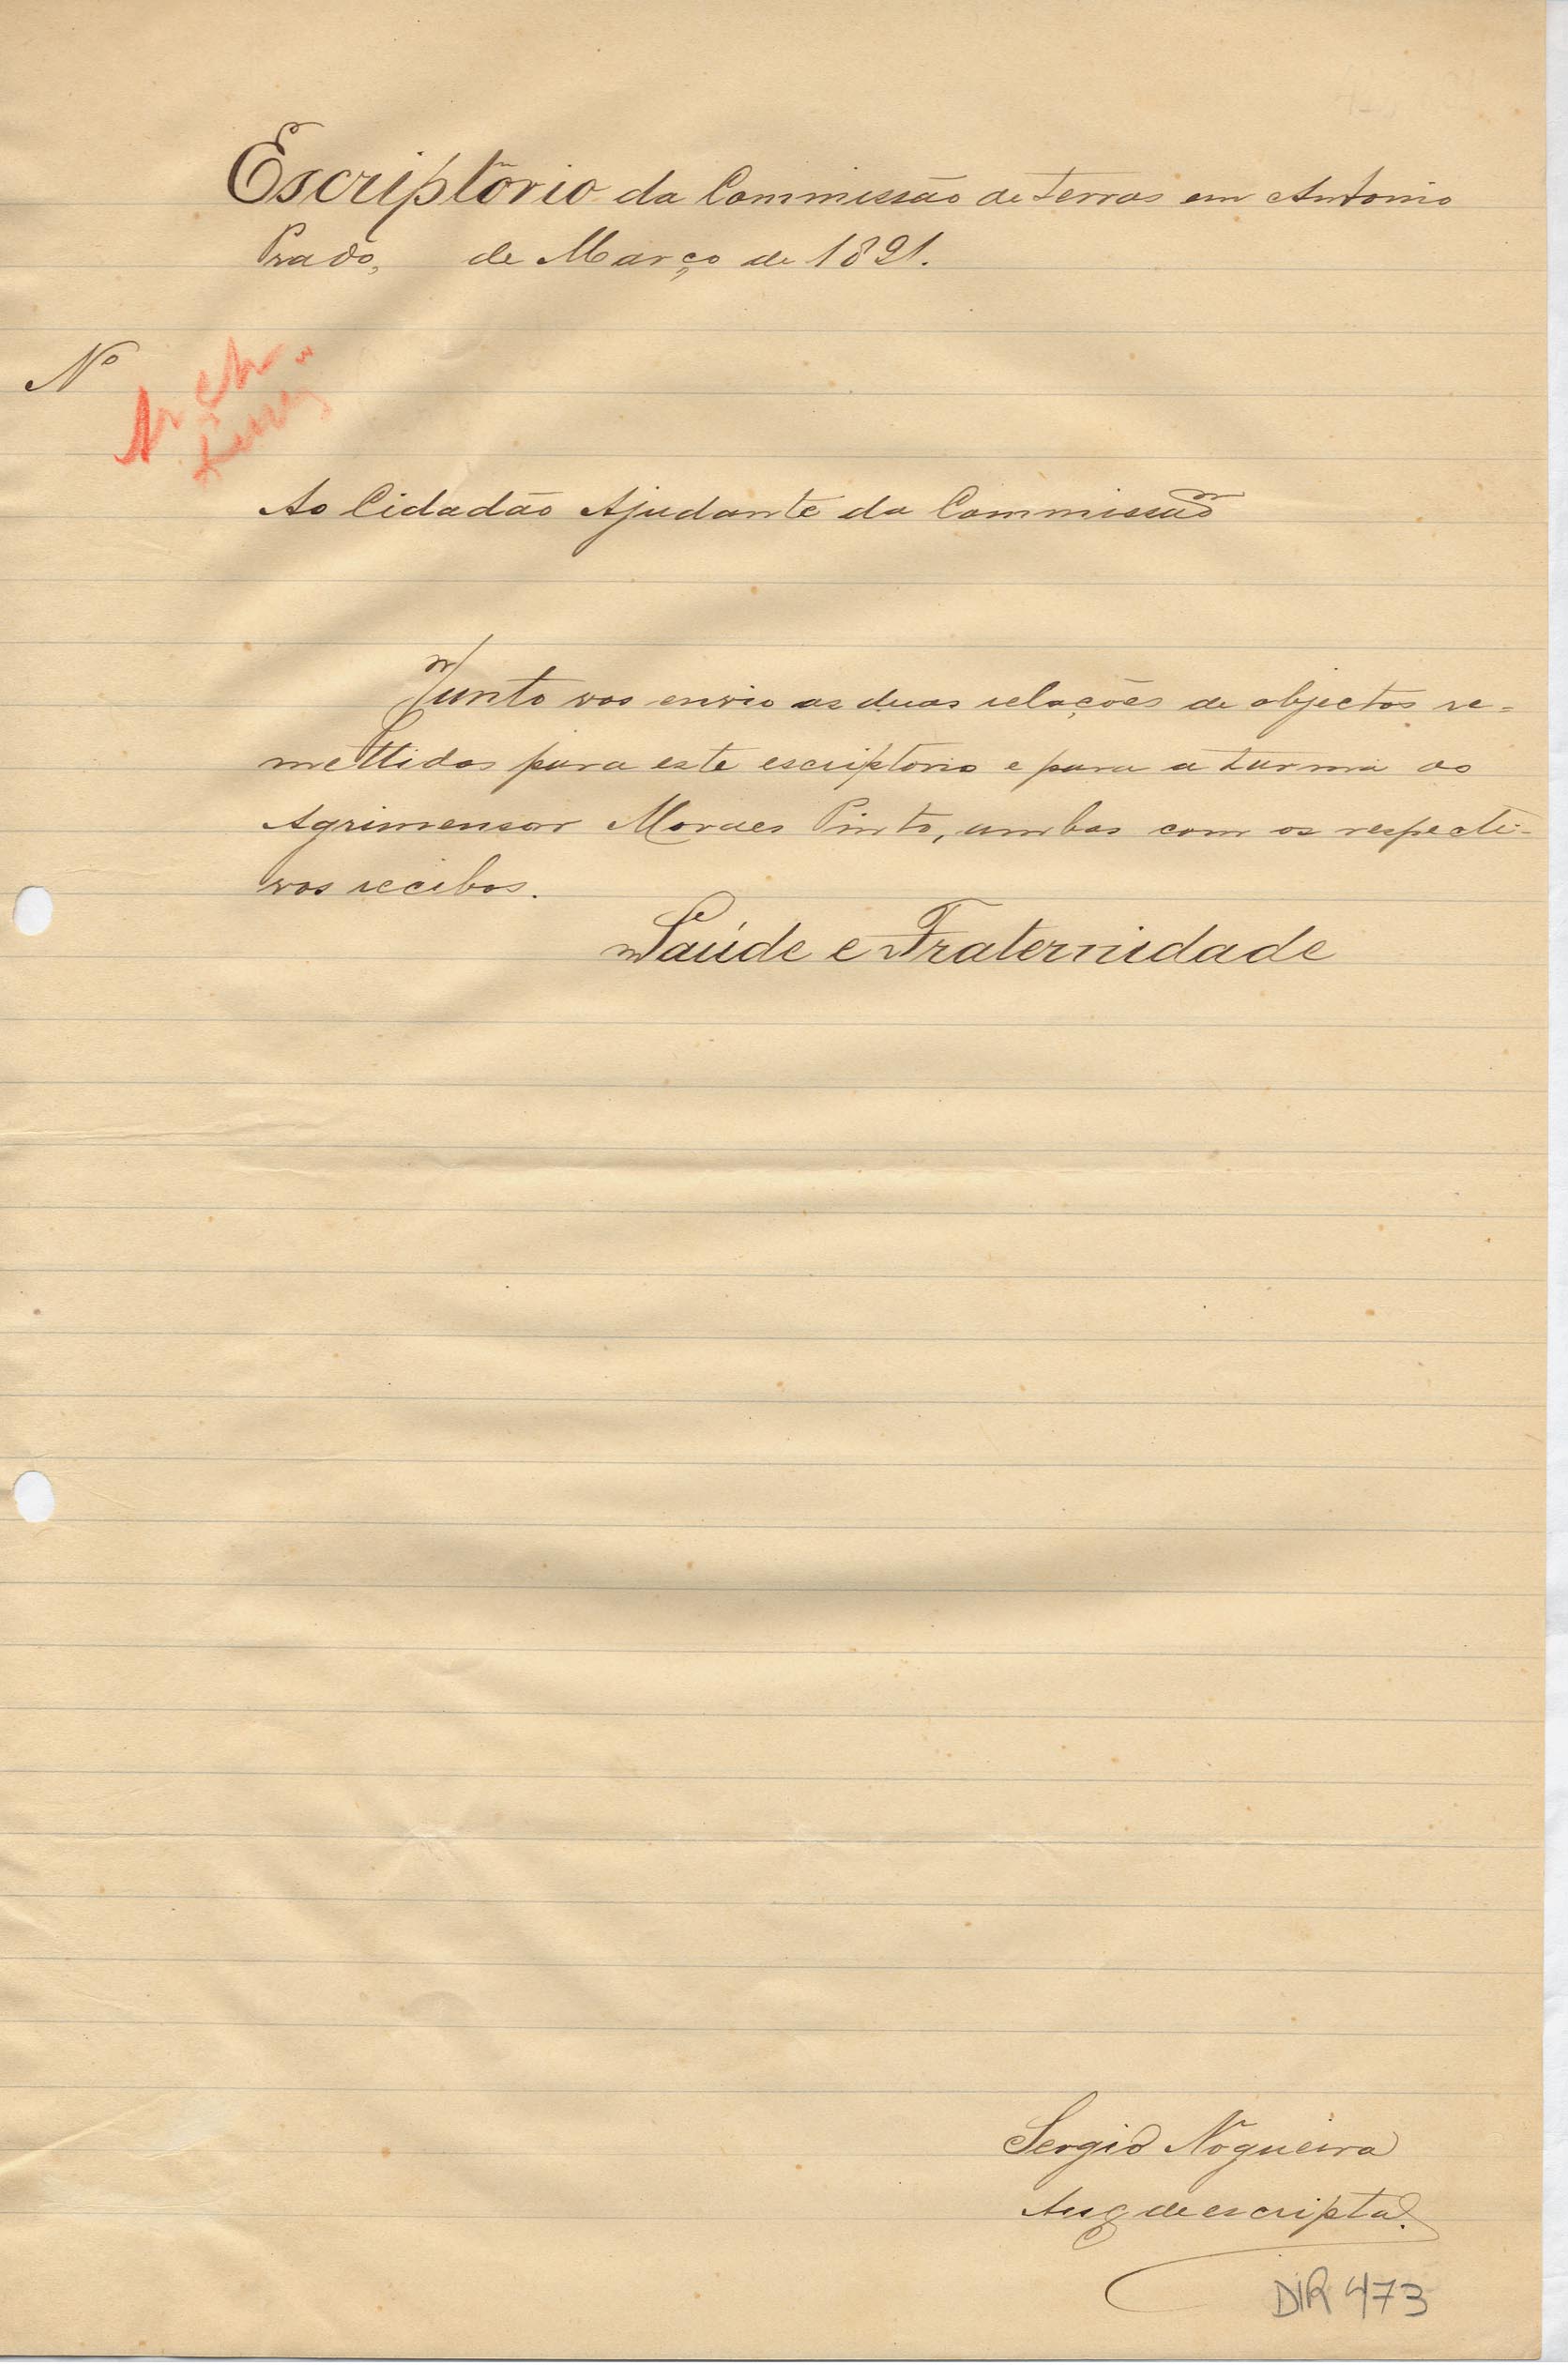 Escriptorio da Commissão de terras em Antonio
Prado, de Março de 1891.
Nº
Ao Cidadão Ajudante da Commissão
Junto vos envio as duas relações de objectos re=
mettidos para este escriptorio e para a turma do
Agrimensor Moraes Pinto, ambas com os respecti-
vos recibos.
Saúde e Fraternidade
Sergio Nogueira
Aux de escripta.
DIR 473